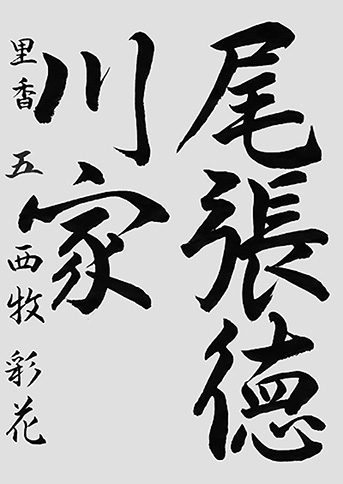 尾張徳
川家
里香 五 西牧彩花